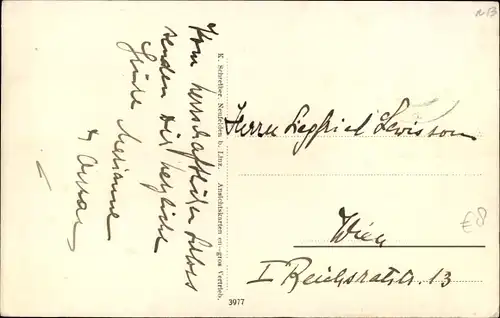 Vom herrschaftlichen Schloss
senden Dir herzliche
Grüße Marianne
& Oskar
K. Schreiber, Neufelden b. Linz. Ansichtskarten en-gros Vertrieb.
Herrn Siegfried Lewisson
Wien
I Reichsratstr. 13
3977
€8